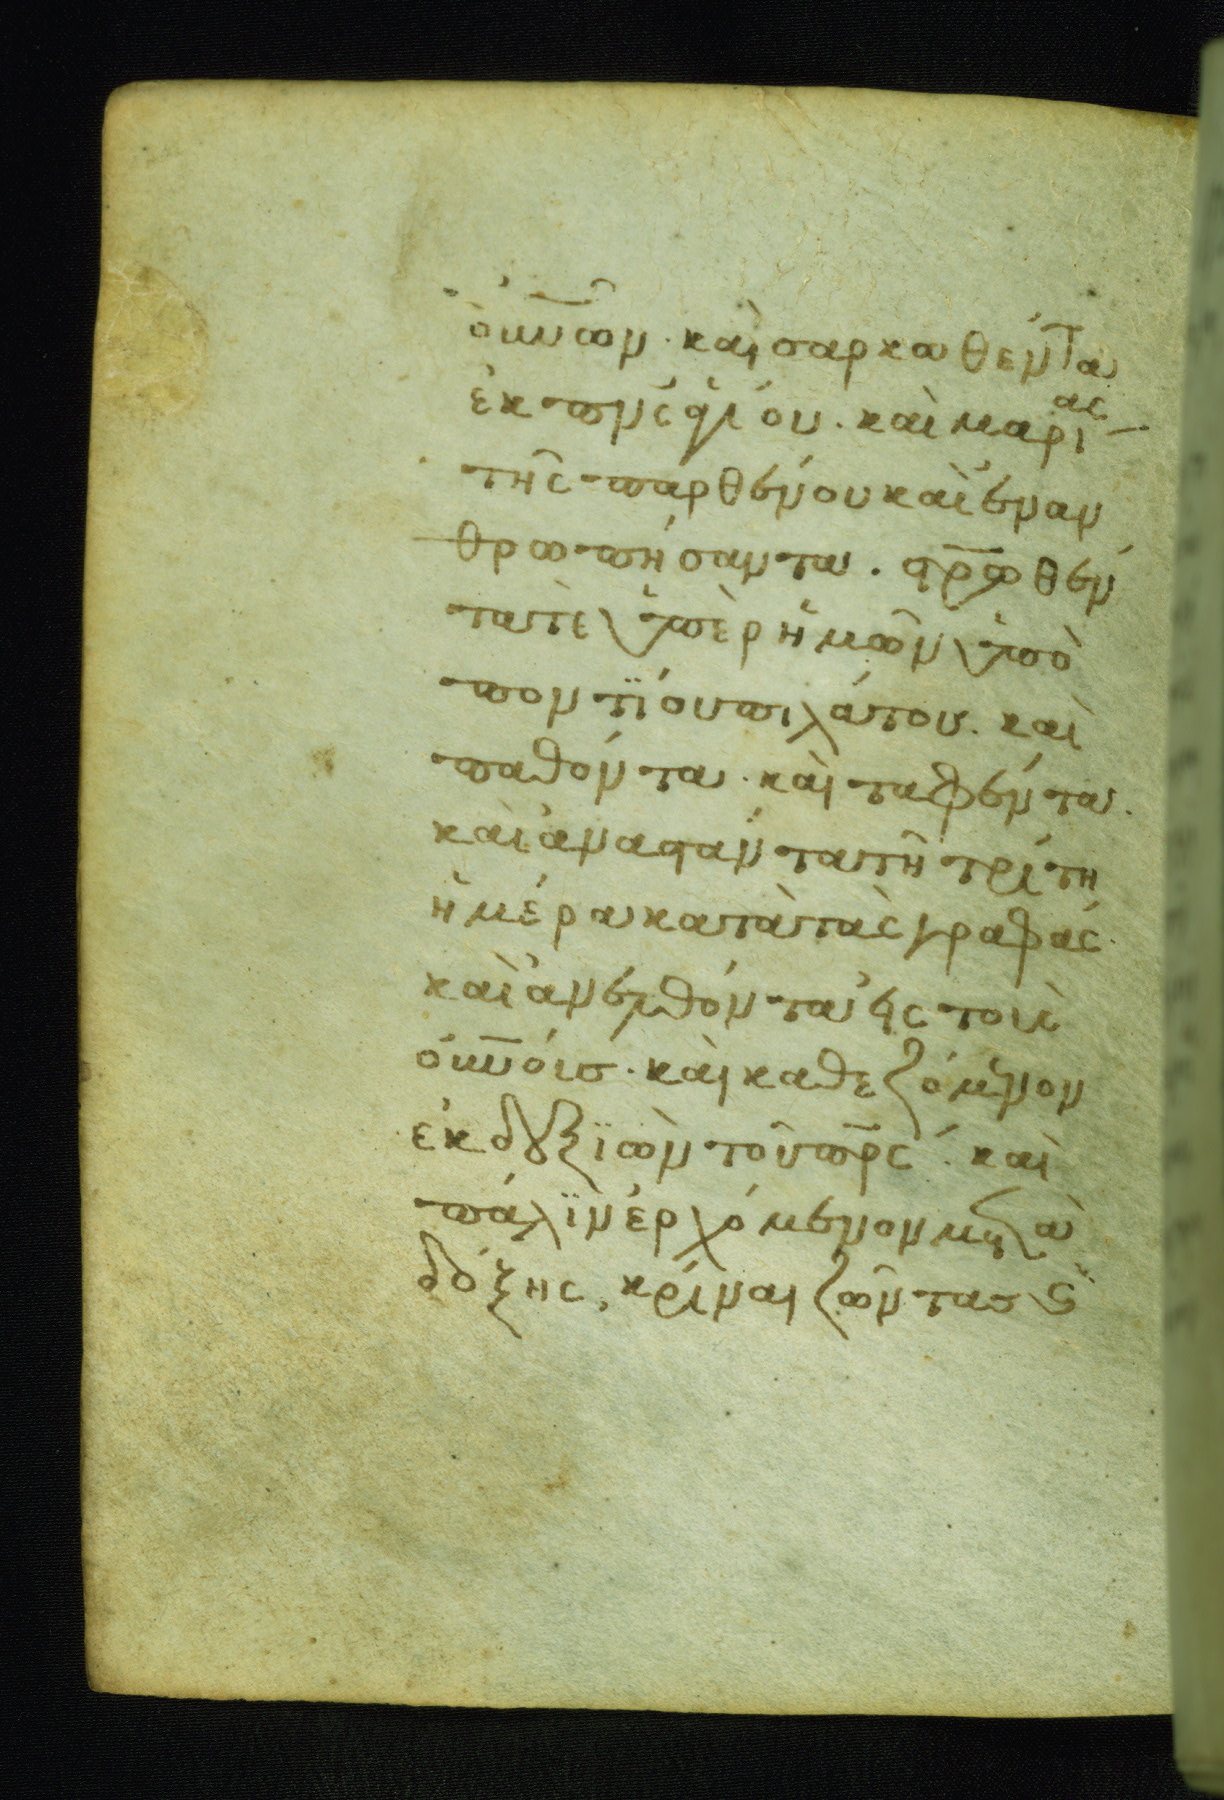 ὀυνῶν· καὶ σαρκωθέντα
ἐκ πνς ἁγίου· καὶ μαρίας
τῆς παρθένου καὶ ἐναν
θρωπήσαντα· στρωθέν
τα τὲ ὑπὲρ ἡμῶν ὑπὸ
ποντΐου πιλάτου· καὶ
παθόντα· καὶ ταφέντα·
καὶ ἀναστάντα τῆ τρίτη
ἡμέρα κατὰ τὰς γραφάς·
καὶ ἀνελθόντα εἰς τοὺς
ουνόυς· καὶ καθεζόμενον
ἐκ δεξϊῶν τοῦ πρς· καὶ
πάλϊν ἐρχόμενον μετὰ
δόξης, κρίναι ζῶντας